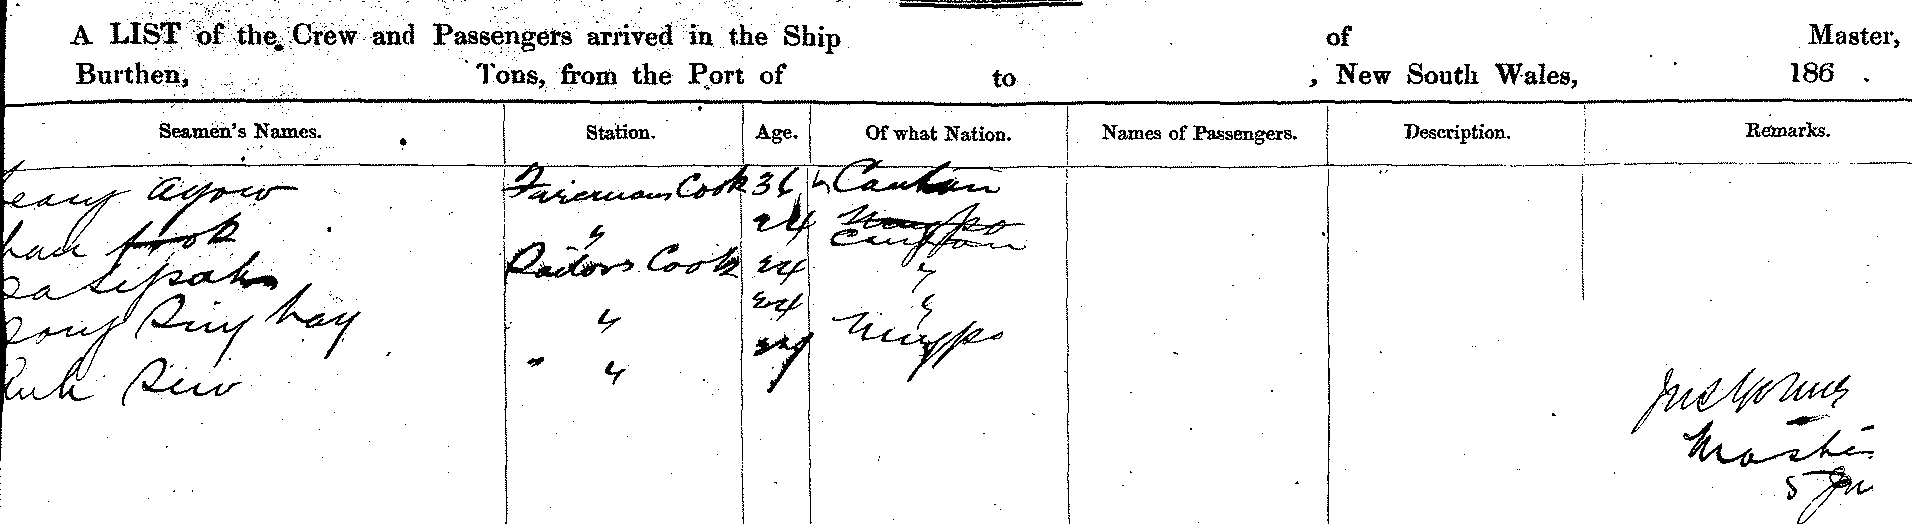 A LIST of the Crew and Passengers arrived in the Ship of Master,
Burthen, Tons, from the Port of to , New South Wales, 186 .
Seamen's Names. Station. Age. Of what Nation. Names of Passengers. Description. Remarks.
Ayow Fairemans Cook 36 Canton
" 24 Ningpo Canton
Sailors Cook 24 "
Sing hay " 24 "
Sew " " Ningpo
Master
5